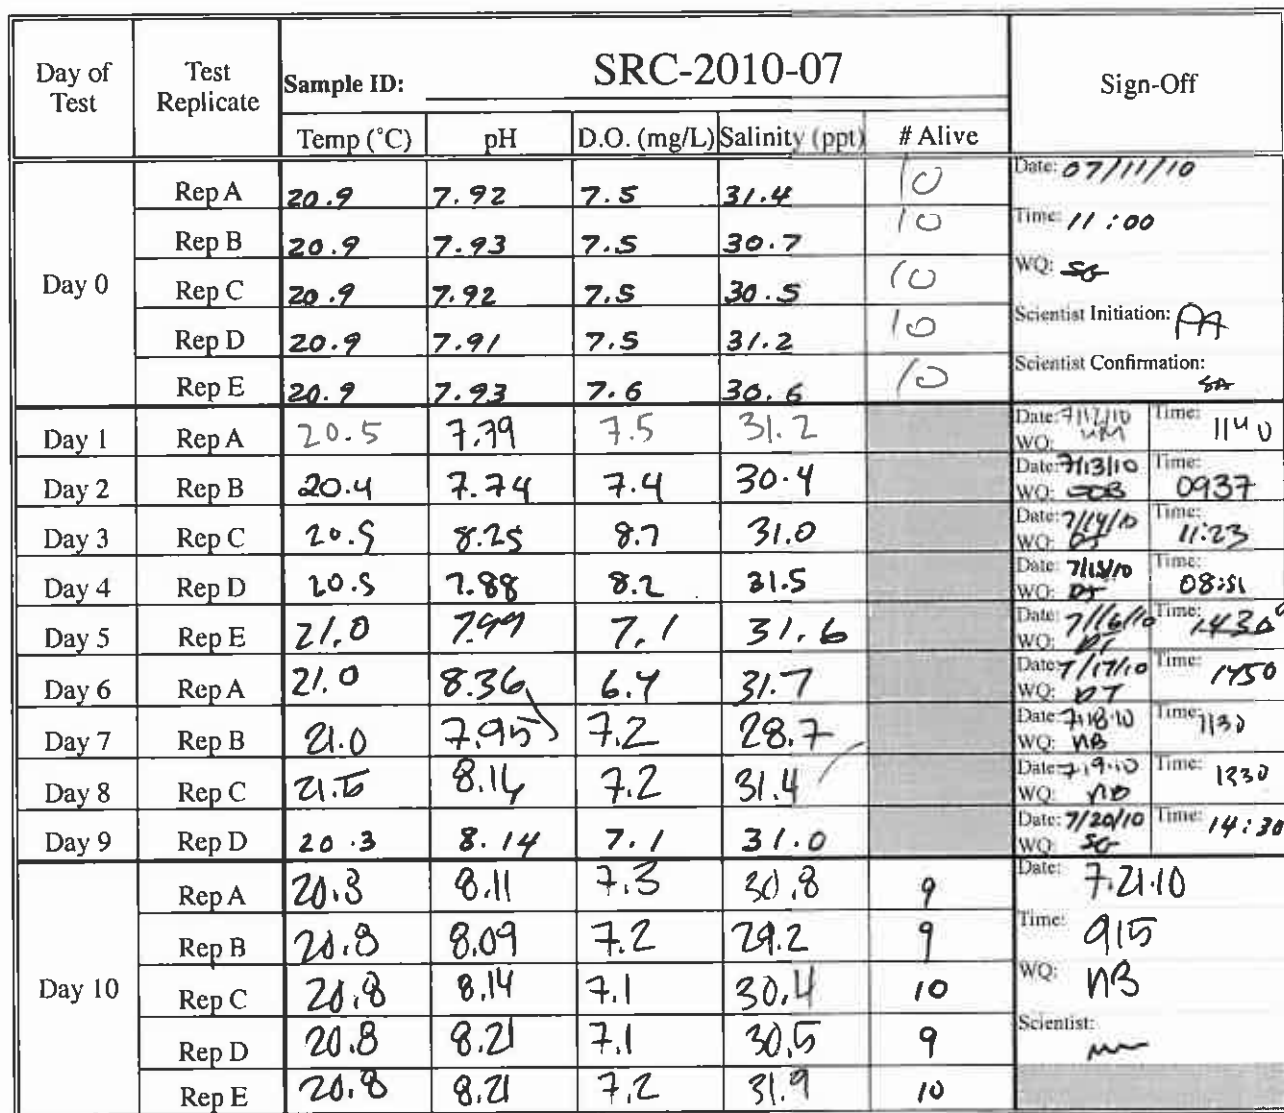 Day of Test Test Replicate Sample ID: SRC-2010-07 Sign-Off
Temp (°C) pH D.O. (mg/L) Salinity (ppt) # Alive
Day 0
Rep A 20.9 7.92 7.5 31.4 10 Date: 07/11/10
Rep B 20.9 7.93 7.5 30.7 10 Time: 11:00
Rep C 20.9 7.92 7.5 30.5 10 WQ: SG
Rep D 20.9 7.91 7.5 31.2 10 Scientist Initiation: PA
Rep E 20.9 7.93 7.6 30.6 10 Scientist Confirmation: SA
Day 1 Rep A 20.5 7.79 7.5 31.2 Date: 7/12/10 Time: 1140
WQ:
Day 2 Rep B 20.4 7.74 7.4 30.4 Date: 7/13/10 Time: 0937
WQ:
Day 3 Rep C 20.5 8.25 8.7 31.0 Date: 7/14/10 Time: 11:23
WQ: DT
Day 4 Rep D 20.5 7.88 8.2 31.5 Date: 7/15/10 Time: 08:51
WQ: DT
Day 5 Rep E 21.0 7.99 7.1 31.6 Date: 7/16/10 Time:
WQ: DT
Day 6 Rep A 21.0 8.36 6.4 31.7 Date: 7/17/10 Time: 1450
WQ: DT
Day 7 Rep B 21.0 7.95 7.2 28.7 Date: 7.18.10 Time: 1130
WQ: NB
Day 8 Rep C 8.14 7.2 31.4 Date: 7.19.10 Time: 1230
WQ: NB
Day 9 Rep D 20.3 8.14 7.1 31.0 Date: 7/20/10 Time: 14:30
WQ: SG
Day 10
Rep A 20.8 8.11 7.3 30.8 9 Date: 7.21.10
Rep B 20.8 8.09 7.2 29.2 9 Time: 915
Rep C 20.8 8.14 7.1 30.4 10 WQ: NB
Rep D 20.8 8.21 7.1 30.5 9 Scientist:
Rep E 20.8 8.21 7.2 31.9 10